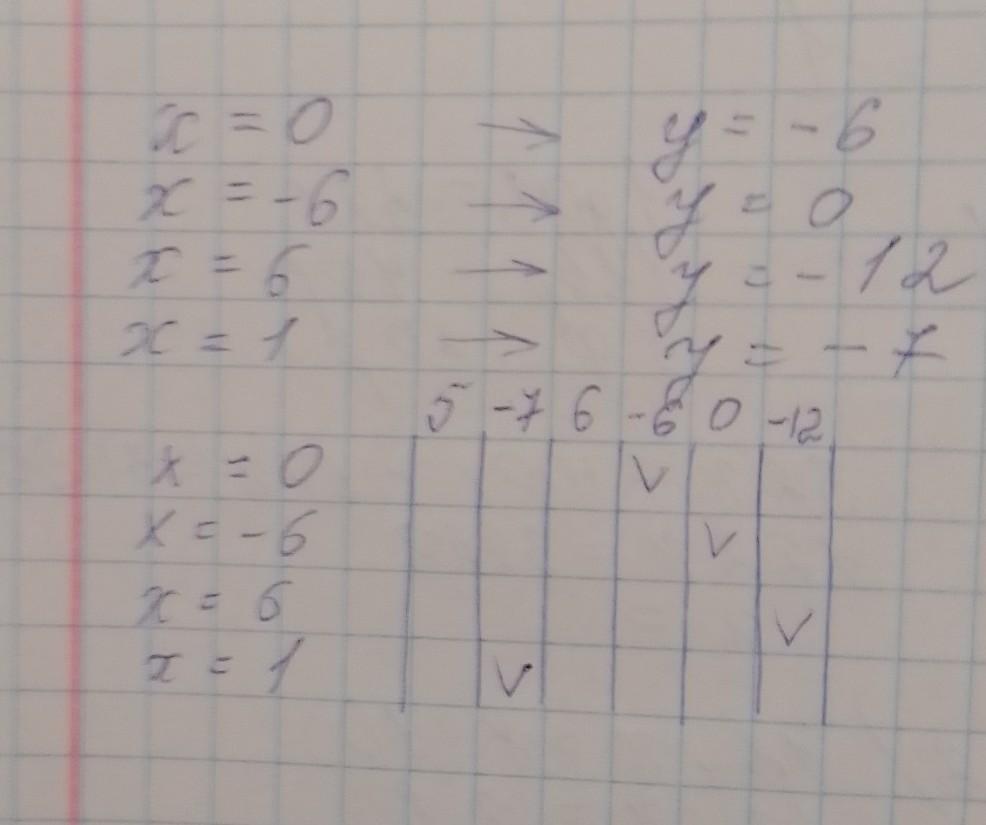 x = 0 → y = -6
x = -6 → y = 0
x = 6 → y = -12
x = 1 → y = -7
5 -7 6 -6 0 -12
x = 0 V
x = -6 V
x = 6 V
x = 1 V